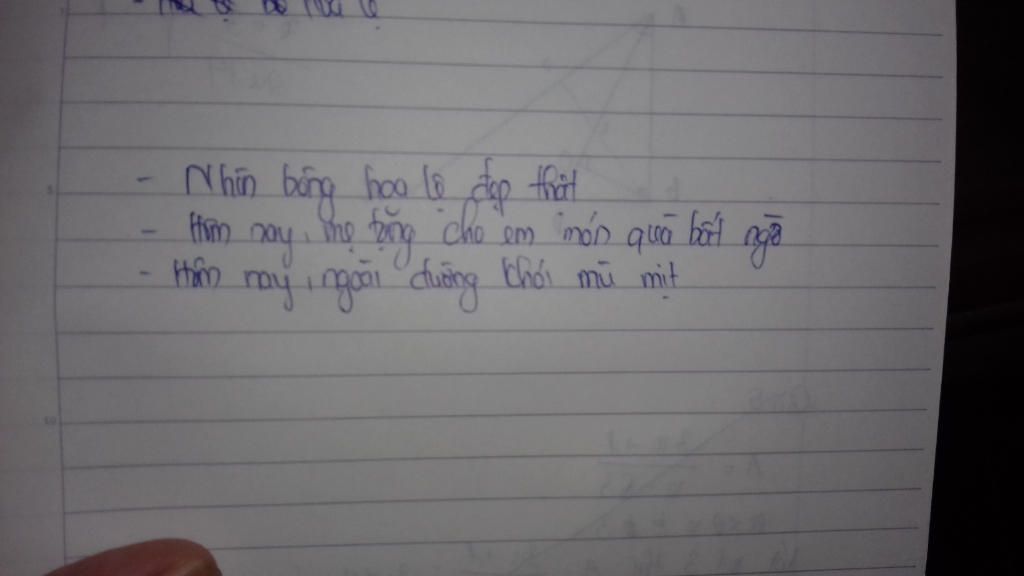 - Nhìn bông hoa lệ đẹp thật
- Hôm nay, mẹ tặng cho em món quà bất ngờ
- Hôm nay, ngoài đường khói mù mịt